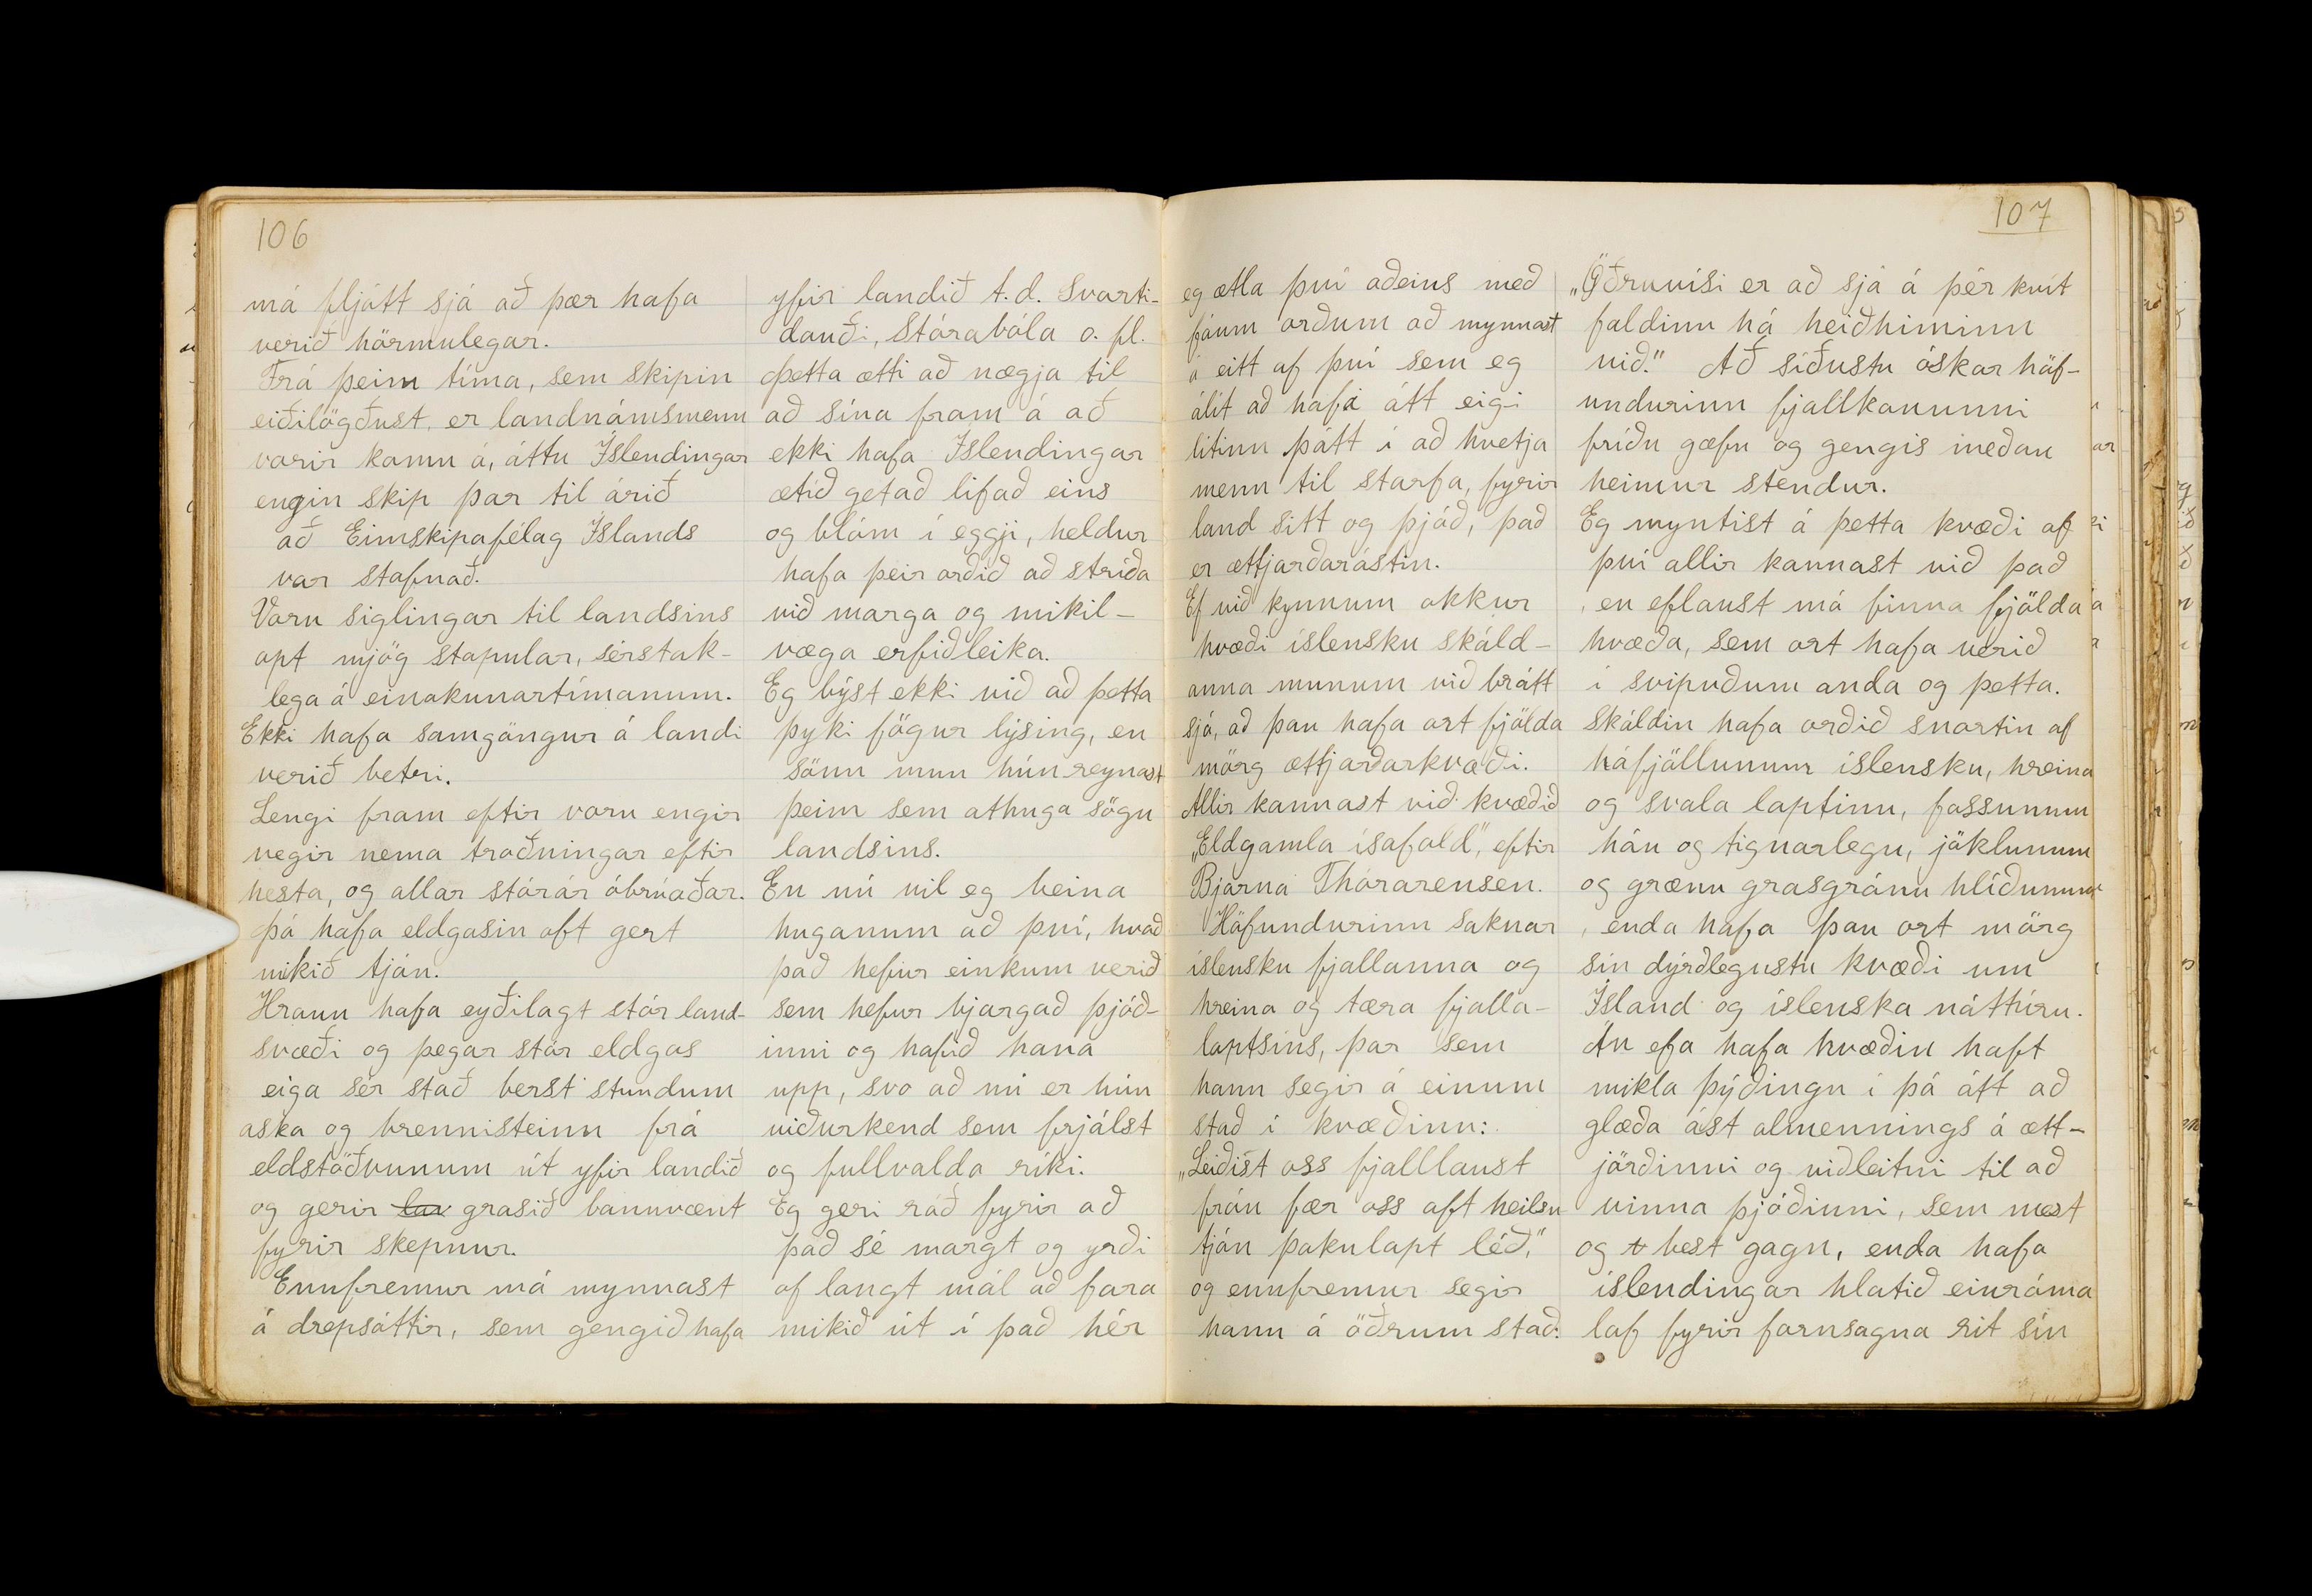 106
má fljótt sjá að þær hafa
verið hörmulegar.
Frá þeim tíma, sem skipin
eiðilögðust, er landnámsmenn
vorir komu á, áttu Íslendingar
engin skip þar til árið
að Eimskipafélag Íslands
var stofnað.
Voru siglingar til landsins
opt mjög stopular, sérstak-
lega á einokunartímanum.
Ekki hafa samgöngur á landi
verið betri.
Lengi fram eftir voru engir
vegir nema troðningar eftir
hesta, og allar stórár óbrúaðar.
Þá hafa eldgosin oft gert
mikið tjón.
Hraun hafa eyðilagt stór land-
svæði og þegar stór eldgos
eiga sér stað berst stundum
aska og brennisteinn frá
eldstöðvunum út yfir landið
og gerir grasið bannvænt
fyrir skepnur.
Ennfremur má mynnast
á drepsóttir, sem gengið hafa
yfir landið t.d. Svarti-
dauði, Stórabóla o. fl.
Þetta ætti að nægja til
að sína fram á að
ekki hafa Íslendingar
ætíð getað lifað eins
og blóm í eggji, heldur
hafa þeir orðið að stríða
við marga og mikil-
væga erfiðleika.
Eg býst ekki við að þetta
þyki fögur lýsing, en
sönn mun hún reynast
þeim sem athuga sögu
landsins.
En nú vil eg beina
huganum að því, hvað
það hefur einkum verið
sem hefur bjargað þjóð-
inni og hafið hana
upp, svo að nú er hún
viðurkend sem frjálst
og fullvalda ríki.
Eg geri ráð fyrir að
það sé margt og yrði
of langt mál að fara
mikið út í það hér
107
eg ætla því aðeins með
fáum orðum að mynnast
á eitt af því sem eg
álít að hafi átt eigi
lítinn þátt í að hvetja
menn til starfa, fyrir
land sitt og þjóð, það
er ættjarðarástin.
Ef við kynnum okkur
kvæði íslensku skáld-
anna munum við brátt
sjá, að þau hafa ort fjölda
mörg ættjarðarkvæði.
Allir kannast við kvæðið
„Eldgamla ísafold", eftir
Bjarna Thórarensen.
Höfundurinn saknar
íslensku fjallanna og
hreina og tæra fjalla-
loptsins, þar sem
hann segir á einum
stað í kvæðinu:
„Leiðist oss fjalllaust
frón fær oss oft heilsu
tjón þokulopt léð,"
og ennfremur segir
hann á öðrum stað:
„Öðruvísi er að sjá á þér hvít
faldinn há heiðhiminn
við." Að síðustu óskar höf-
undurinn fjallkonunni
fríðu gæfu og gengis meðan
heimur stendur.
Eg myntist á þetta kvæði af
því allir kannast við það
, en eflaust má finna fjölda
kvæða, sem ort hafa verið
í svipuðum anda og þetta.
Skáldin hafa orðið snortin af
háfjöllunum íslensku, hreina
og svala loptinu, fossunum
háu og tignarlegu, jöklunum
og grænu grasgrónu hlíðunum
, enda hafa þau ort mörg
sín dýrðlegustu kvæði um
Ísland og íslenska náttúru.
Án efa hafa kvæðin haft
mikla þýðingu í þá átt að
glæða ást almennings á ætt-
jörðinni og viðleitni til að
vinna þjóðinni, sem mest
og best gagn, enda hafa
íslendingar hlotið einróma
lof fyrir fornsagna rit sín